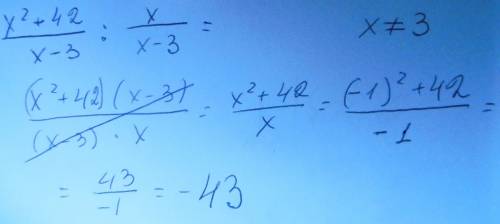 (x² + 42)/(x - 3) : x/(x - 3) = x ≠ 3
((x² + 42)(x - 3))/((x - 3) · x) = (x² + 42)/x = ((-1)² + 42)/(-1) =
= 43/(-1) = -43